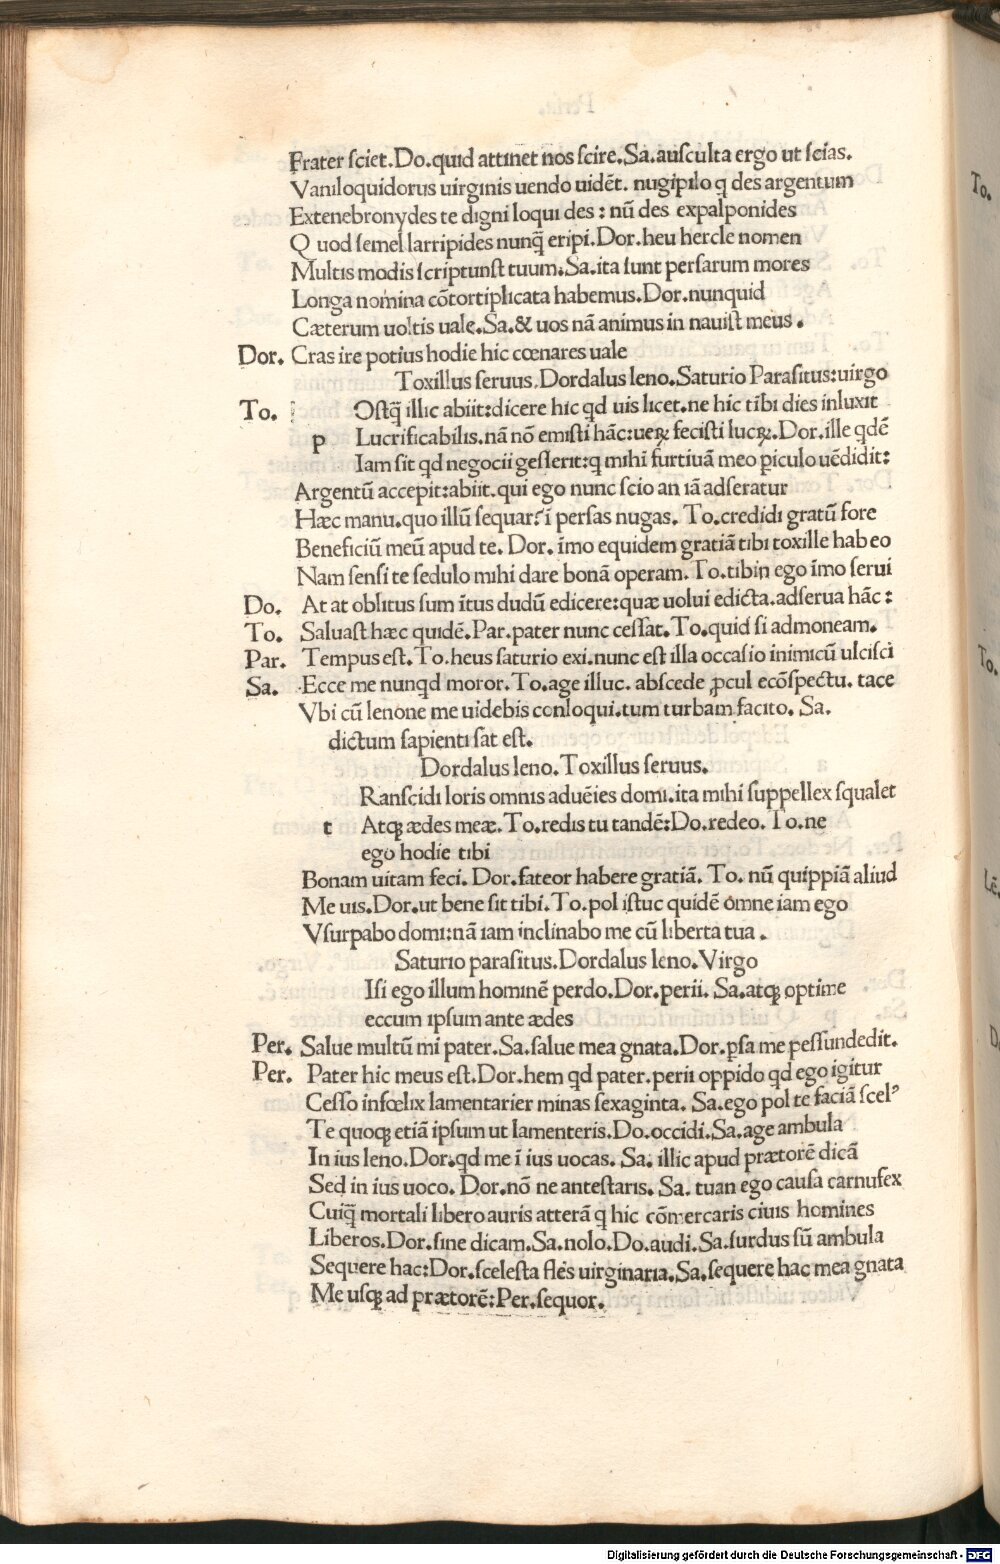 Frater sciet.Do.quid attinet nos scire.Sa.ausculta ergo ut scias.
Vaniloquidorus uirginis uendo uidēt. nugipilo q des argentum
Extenebronydes te digni loqui des: nū des expalponides
Q uod semel larripides nunq̄ eripi.Dor.heu hercle nomen
Multis modis scriptunst tuum.Sa.ita sunt persarum mores
Longa nomina cōtortiplicata habemus.Dor.nunquid
Cæterum uoltis uale.Sa.& uos nā animus in nauist meus.
Dor. Cras ire potius hodie hic cœnares uale
Toxillus seruus.Dordalus leno.Saturio Parasitus:uirgo
To. Ostq̄ illic abiit:dicere hic qd uis licet.ne hic tībi dies inluxit
p Lucrificabilis.nā nō emisti hāc:ueꝝ fecisti lucꝝ.Dor.ille qdē
Iam sit qd negocii gesserit:q mihi furtiuā meo piculo uēdidit:
Argentū accepit:abiit.qui ego nunc scio an iā adseratur
Hæc manu.quo illū sequar? ī persas nugas. To.credidi gratū fore
Beneficiū meū apud te. Dor. īmo equidem gratiā tibi toxille habeo
Nam sensi te sedulo mihi dare bonā operam. To.tibin ego īmo serui
Do. At at oblitus sum ītus dudū edicere:quæ uolui edicta.adserua hāc:
To. Saluast hæc quidē.Par.pater nunc cessat.To.quid si admoneam.
Par. Tempus est.To.heus saturio exi.nunc est illa occasio inimicū ulcisci
Sa. Ecce me nunqd moror.To.age illuc. abscede ꝓcul ecōspectu. tace
Vbi cū lenone me uidebis conloqui.tum turbam facito. Sa.
dictum sapienti sat est.
Dordalus leno.Toxillus seruus.
Ranscidi loris omnis aduēies domi.ita mihi suppellex squalet
t Atqꝫ ædes meæ.To.redis tu tandē:Do.redeo. To.ne
ego hodie tibi
Bonam uitam feci. Dor.fateor habere gratiā. To. nū quippiā aliud
Me uis.Dor.ut bene sit tibi.To.pol istuc quidē omne iam ego
Vsurpabo domi:nā iam inclinabo me cū liberta tua.
Saturio parasitus.Dordalus leno.Virgo
Isi ego illum hominē perdo.Dor.perii. Sa.atqꝫ optime
eccum ipsum ante ædes
Per. Salue multū mi pater.Sa.salue mea gnata.Dor.psa me pessundedit.
Per. Pater hic meus est.Dor.hem qd pater.perii oppido qd ego igitur
Cesso infœlix lamentarier minas sexaginta. Sa.ego pol te faciā scelꝰ
Te quoqꝫ etiā ipsum ut lamenteris.Do.occidi.Sa.age ambula
In ius leno.Dor.qd me ī ius uocas. Sa. illic apud prætorē dicā
Sed in ius uoco. Dor.nō ne antestaris. Sa. tuan ego causa carnufex
Cuiq̄ mortali libero auris atterā q hic cōmercaris ciuis homines
Liberos.Dor.sine dicam.Sa.nolo.Do.audi.Sa.surdus sū ambula
Sequere hac:Dor.scelesta fles uirginaria.Sa.sequere hac mea gnata
Me usqꝫ ad prætorē:Per.sequor.
To.
To.
Lē.
D
Digitalisierung gefördert durch die Deutsche Forschungsgemeinschaft - DFG